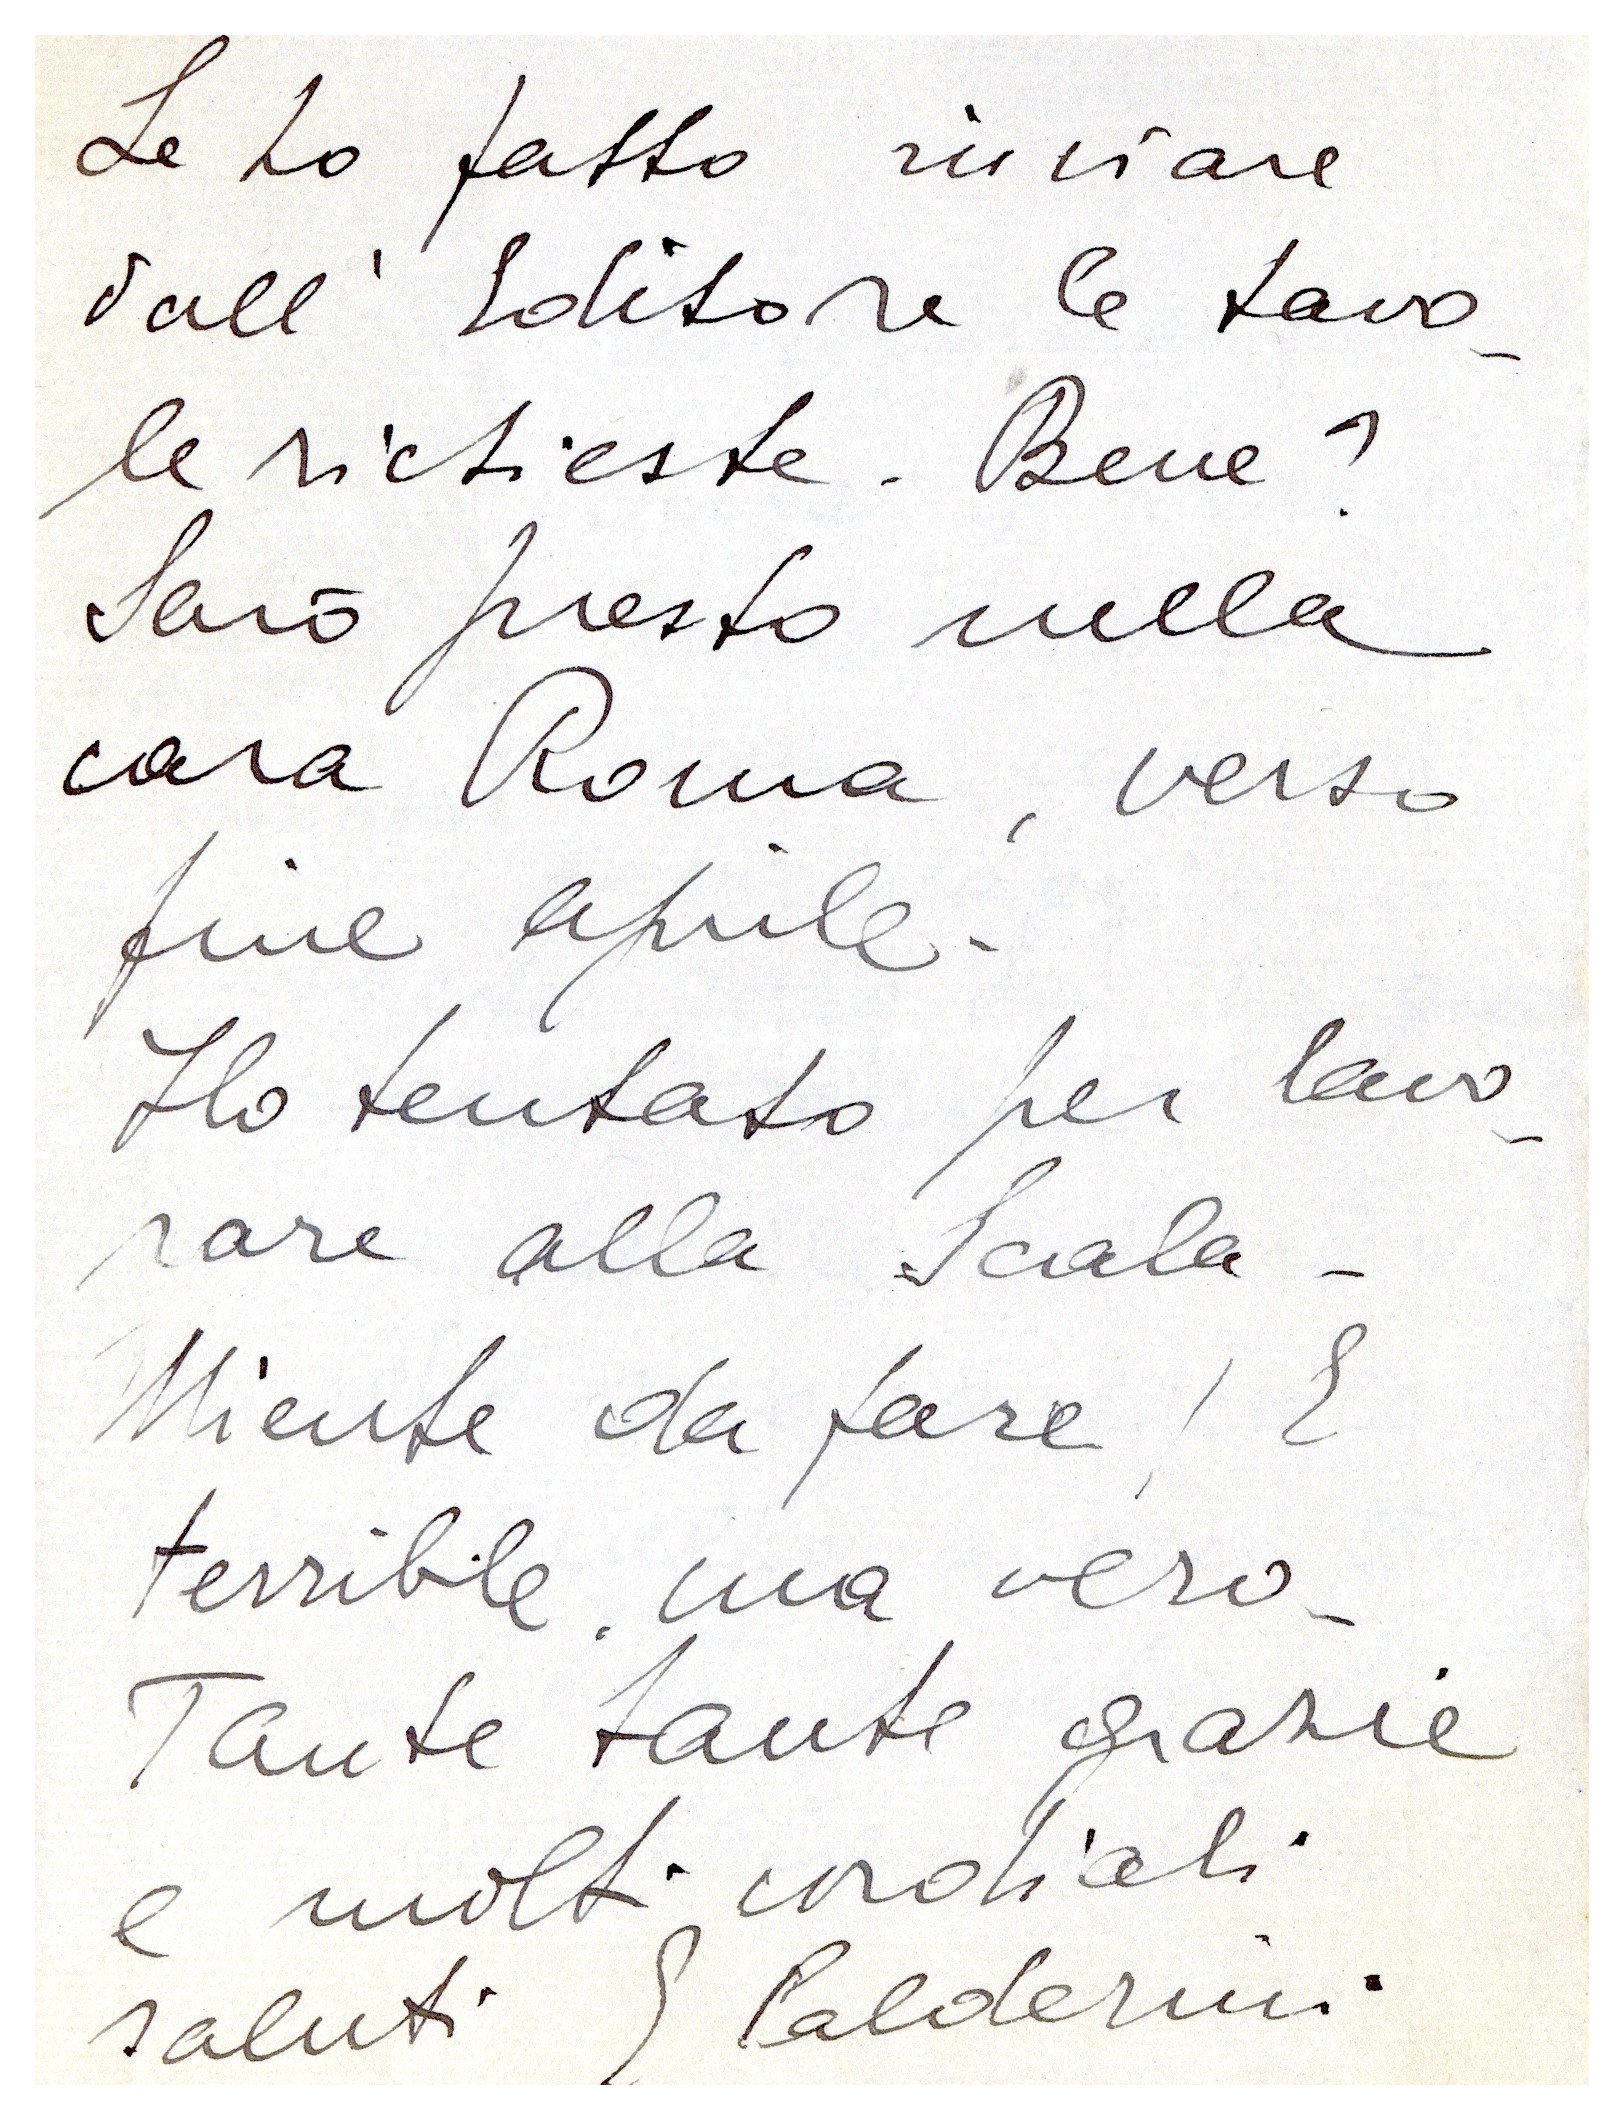 Le ho fatto inviare
dall' Editore le tavo-
le richieste. Bene?
Sarò presto nella
cara Roma, verso
fine aprile.
Ho tentato per lavo-
rare alla Scala -
Niente da fare! E
terribile, ma vero -
Tante tante grazie
e molti cordiali
saluti E Calderini